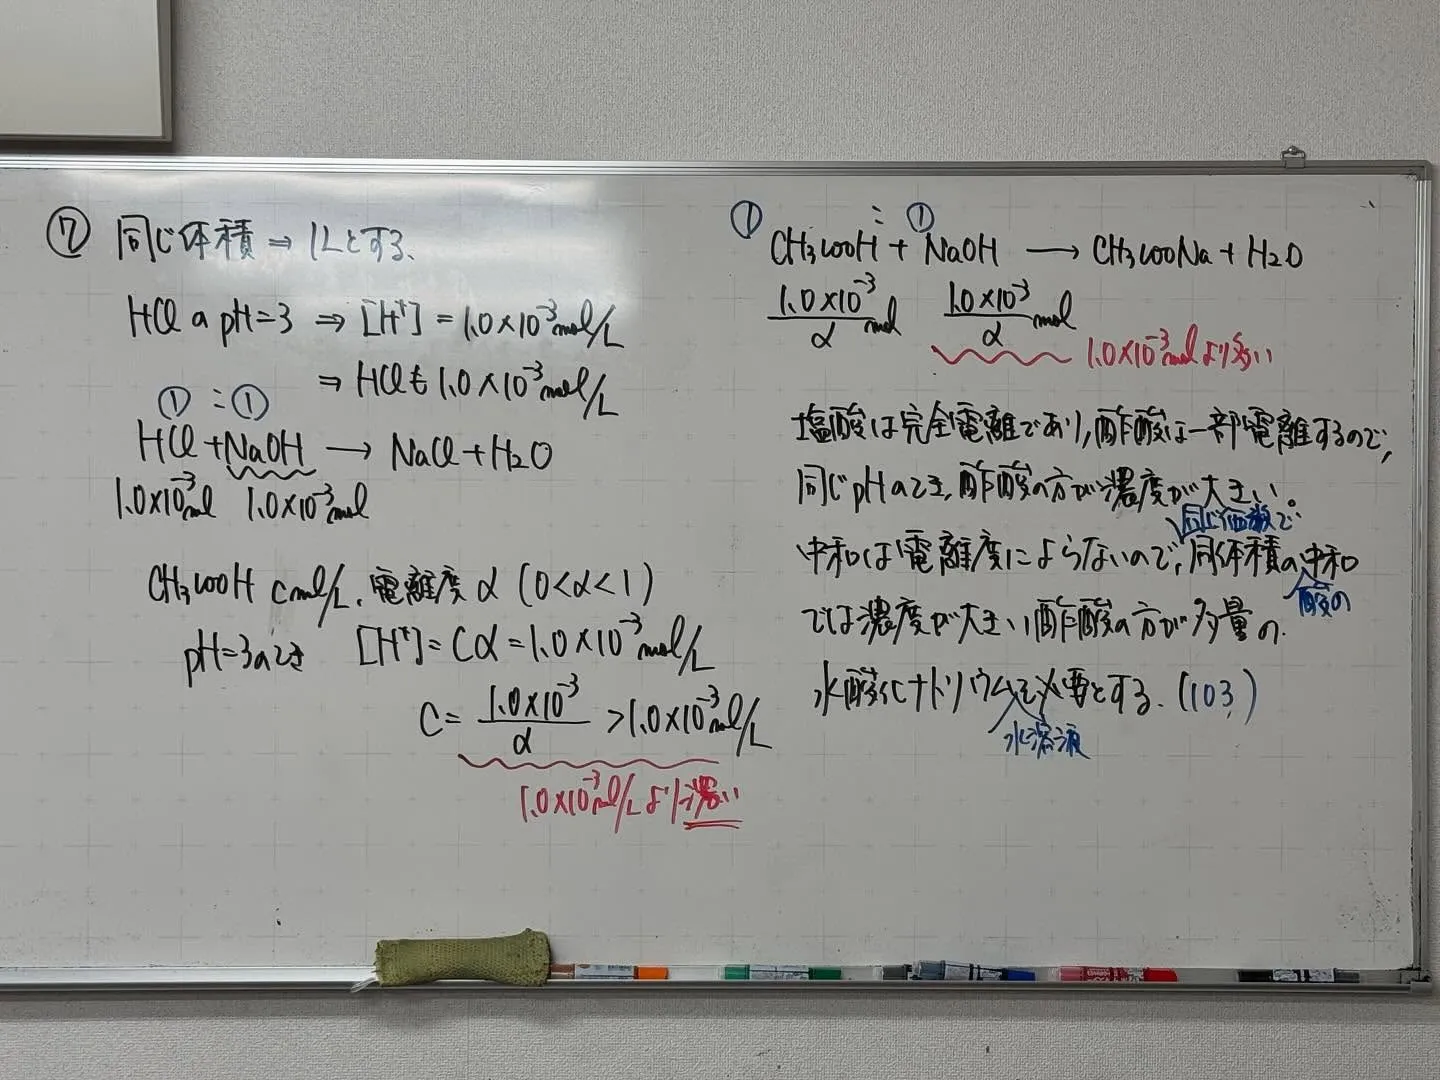 ⑦ 同じ体積 ⇒ 1Lとする、
HClのpH=3 ⇒ [H⁺] = 1.0×10⁻³mol/L
⇒ HClも1.0×10⁻³mol/L
① : ①
HCl + NaOH ⟶ NaCl + H2O
1.0×10⁻³mol 1.0×10⁻³mol
CH3COOH cmol/L、電離度 α (0<α<1)
pH=3のとき [H⁺] = Cα = 1.0×10⁻³mol/L
C = 1.0×10⁻³/α > 1.0×10⁻³mol/L
1.0×10⁻³mol/Lより濃い
① : ①
CH3COOH + NaOH ⟶ CH3COONa + H2O
1.0×10⁻³/α mol 1.0×10⁻³/α mol
1.0×10⁻³molより多い
塩酸は完全電離であり,酢酸は一部電離するので,
同じpHのとき,酢酸の方が濃度が大きい。
同じ価数で
中和は電離度によらないので,同体積の中和
酸の
では濃度が大きい酢酸の方が多量の
水酸化ナトリウムを必要とする.(103)
水溶液